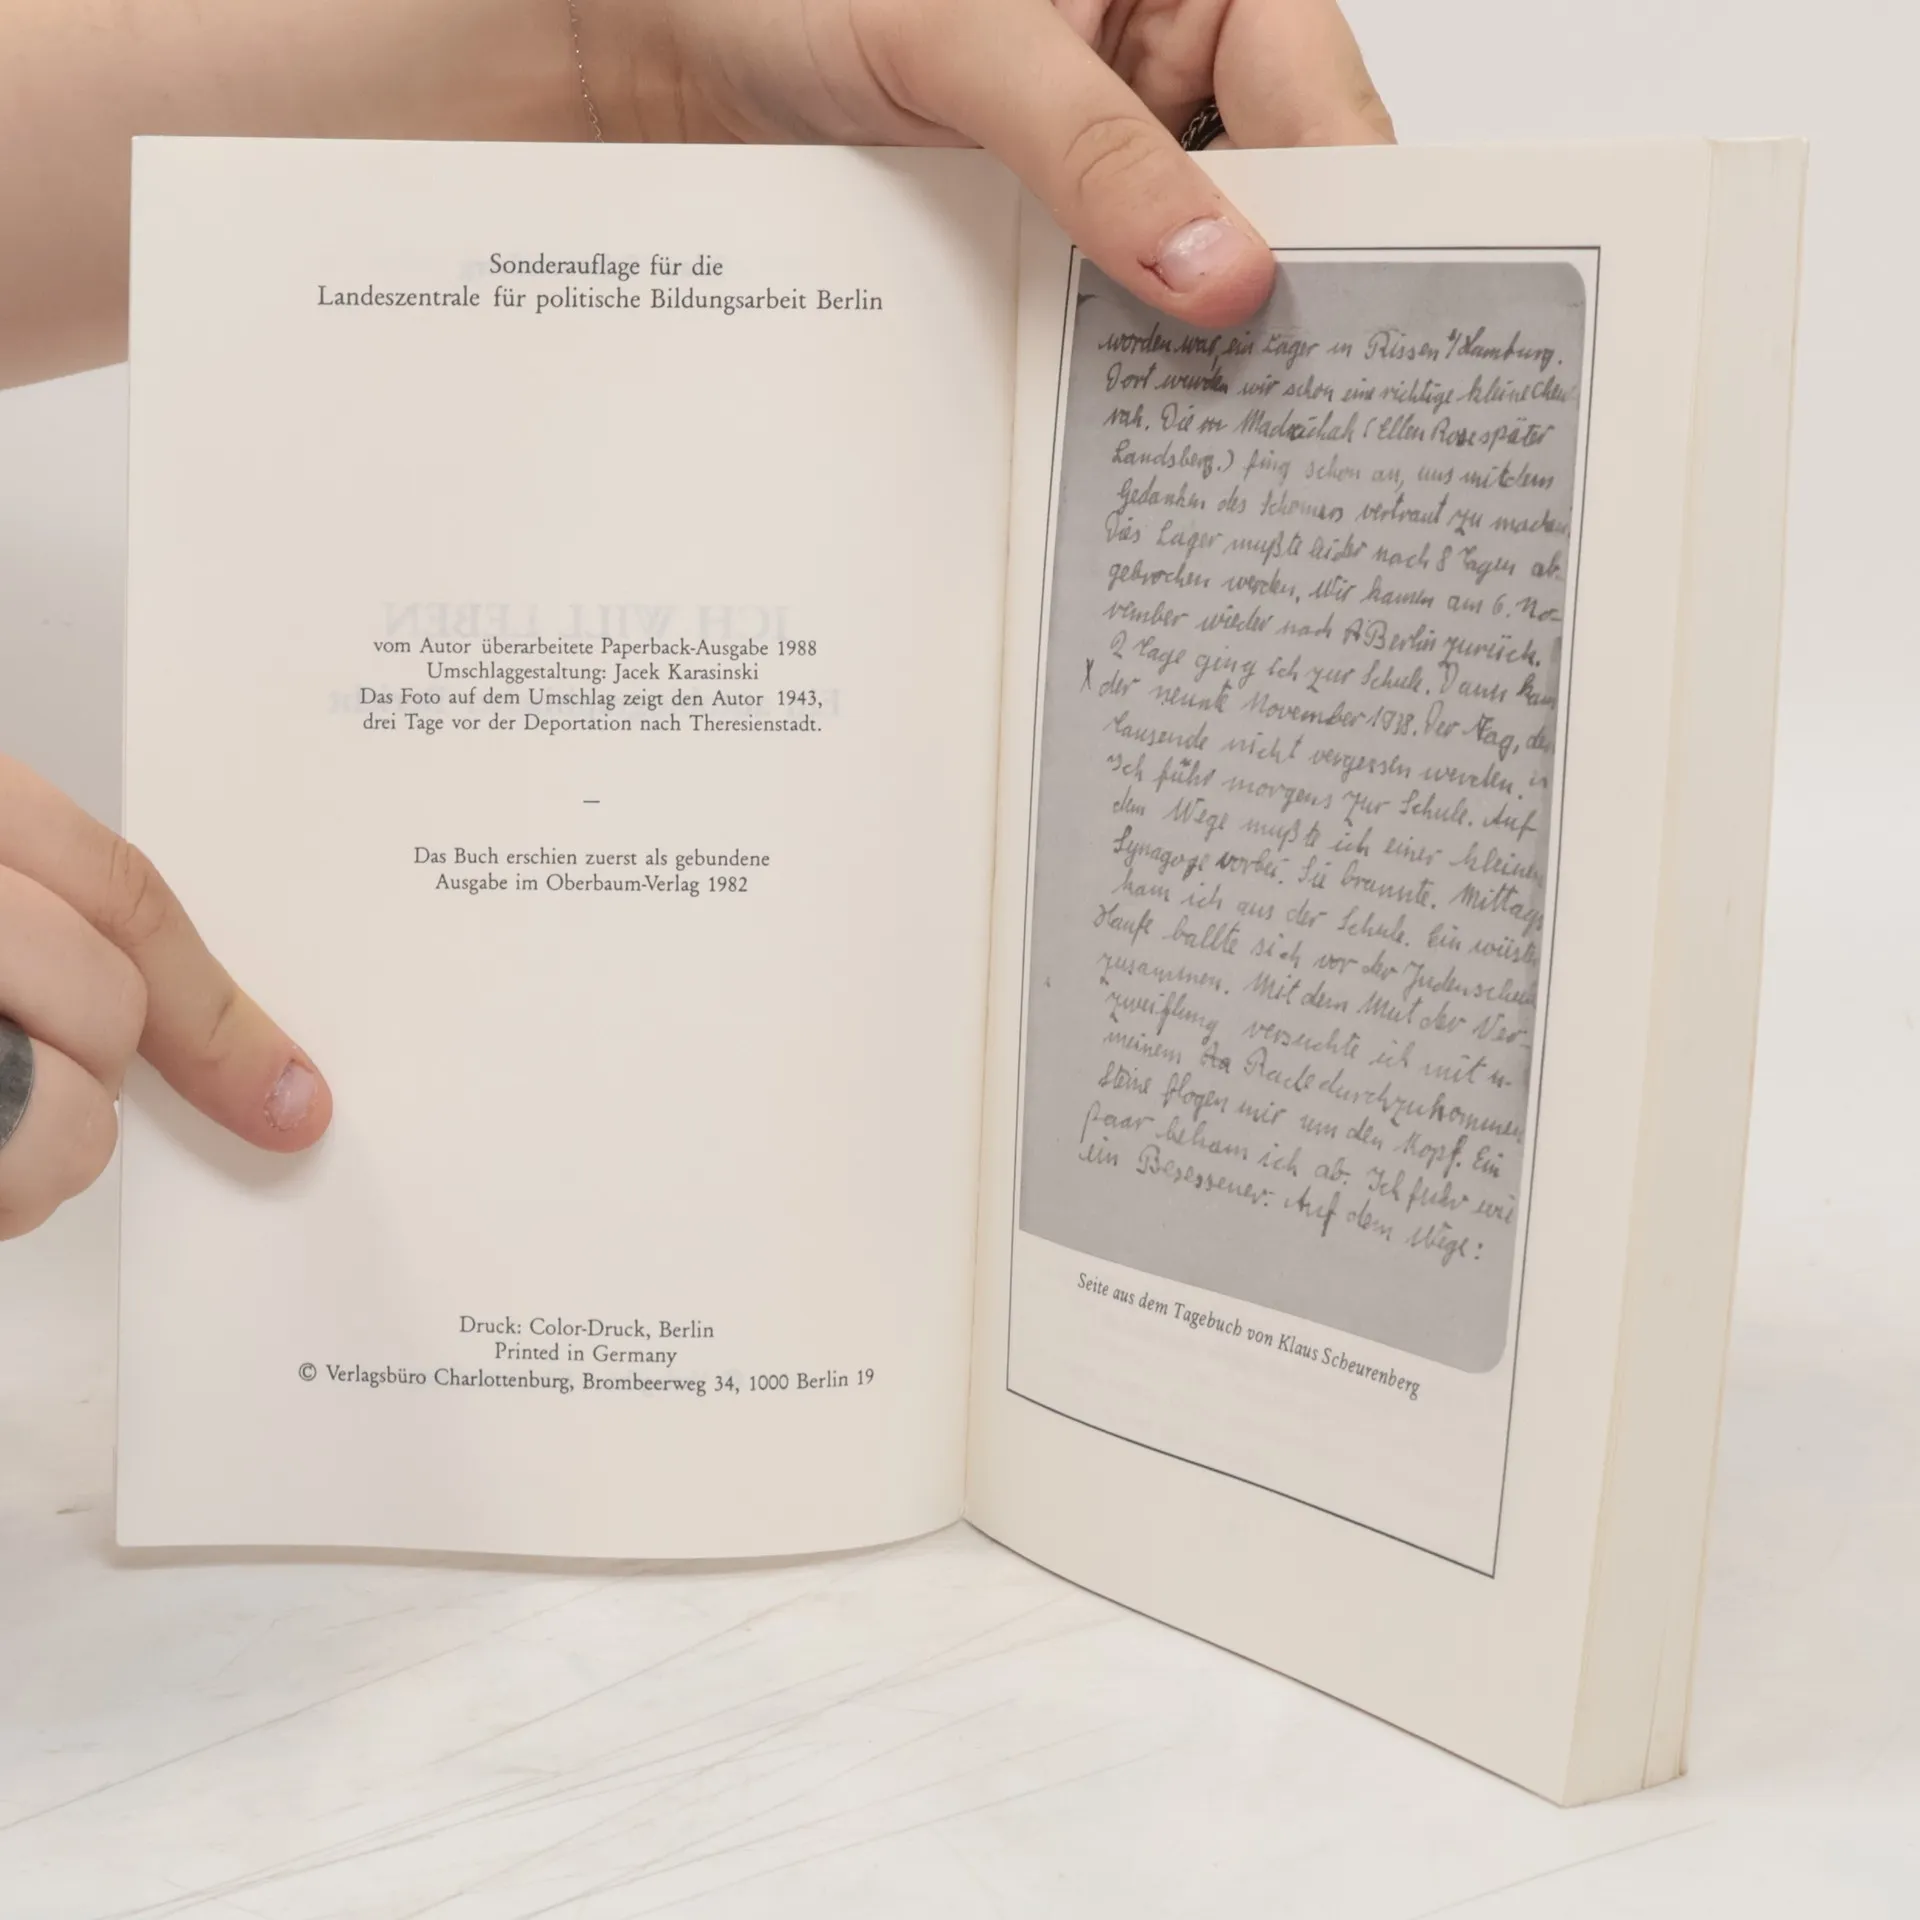 Sonderauflage für die
Landeszentrale für politische Bildungsarbeit Berlin
ICH WILL LEBEN
vom Autor überarbeitete Paperback-Ausgabe 1988
Umschlaggestaltung: Jacek Karasinski
Das Foto auf dem Umschlag zeigt den Autor 1943,
drei Tage vor der Deportation nach Theresienstadt.
—
Das Buch erschien zuerst als gebundene
Ausgabe im Oberbaum-Verlag 1982
Druck: Color-Druck, Berlin
Printed in Germany
© Verlagsbüro Charlottenburg, Brombeerweg 34, 1000 Berlin 19
worden war, ein Lager in Rissen b/Hamburg.
Dort wurden wir schon eine richtige kleine
rah. Die Madrichah (Ellen Rose später
Landsberg.) fing schon an, uns mit dem
Gedanken des Schomers vertraut zu machen.
Dies Lager mußte leider nach 8 Tagen ab-
gebrochen werden. Wir kamen am 6. No-
vember wieder nach Berlin zurück.
2 Tage ging ich zur Schule. Dann kam
X der neunte November 1938. Der Tag, den
tausende nicht vergessen werden.
Ich fuhr morgens zur Schule. Auf
dem Wege mußte ich einer kleinen
Synagoge vorbei. Sie brannte. Mittags
kam ich aus der Schule. Ein wüster
Haufe ballte sich vor der Judenschule
zusammen. Mit dem Mut der Ver-
zweiflung versuchte ich mit
meinem Rade durchzukommen
Steine flogen mir um den Kopf. Ein
paar bekam ich ab. Ich fuhr wie
ein Besessener. Auf dem Wege:
Seite aus dem Tagebuch von Klaus Scheurenberg